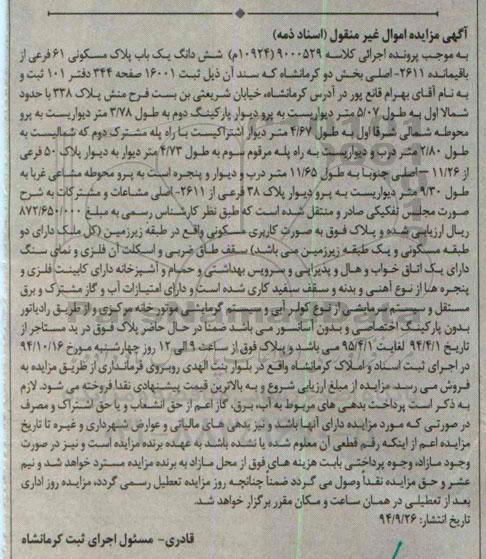 آگهی مزایده اموال غیر منقول (اسناد ذمه)
به موجب پرونده اجرائی کلاسه ۹۰۰۰۵۲۹ (۱۰۹۲۴م) شش دانگ یک باب پلاک مسکونی ۶۱ فرعی از
باقیمانده ۲۶۱۱- اصلی بخش دو کرمانشاه که سند آن ذیل ثبت ۱۶۰۰۱ صفحه ۳۴۴ دفتر ۱۰۱ ثبت و
به نام آقای بهرام قانع پور در آدرس کرمانشاه، خیابان شریعتی بن بست فرح منش پلاک ۳۳۸ با حدود
شمالا اول به طول ۵/۰۷ متر دیواریست به پرو دیوار پارکینگ دوم به طول ۳/۷۸ متر دیواریست به پرو
محوطه شمالی شرقا اول به طول ۴/۶۷ متر دیوار اشتراکیست با راه پله مشترک دوم که شمالیست به
طول ۲/۸۰ متر درب و دیواریست به راه پله مرقوم سوم به طول ۴/۷۳ متر دیوار به دیوار پلاک ۵۰ فرعی
از ۱۱/۲۶ – اصلی جنوبا به طول ۱۱/۶۵ متر درب و دیوار و پنجره است به پرو محوطه مشاعی غربا به
طول ۹/۳۰ متر دیواریست به پرو دیوار پلاک ۳۸ فرعی از ۲۶۱۱- اصلی مشاعات و مشترکات به شرح
صورت مجلس تفکیکی صادر و منتقل شده است که طبق نظر کارشناس رسمی به مبلغ ۸۷۲/۶۵۰/۰۰۰
ریال ارزیابی شده و پلاک فوق به صورت کاربری مسکونی واقع در طبقه زیرزمین (کل ملک دارای دو
طبقه مسکونی و یک طبقه زیرزمین می باشد) سقف طاق ضربی و اسکلت آن فلزی و نمای سنگ
دارای یک اتاق خواب و هال و پذیرایی و سرویس بهداشتی و حمام و آشپزخانه دارای کابینت فلزی و
پنجره ها از نوع آهنی و بدنه و سقف سفید کاری شده است و دارای امتیازات آب و گاز مشترک و برق
مستقل و سیستم سرمایشی از نوع کولر آبی و سیستم گرمایشی موتورخانه مرکزی و از طریق رادیاتور
بدون پارکینگ اختصاصی و بدون آسانسور می باشد ضمنا در حال حاضر پلاک فوق در ید مستاجر از
تاریخ ۹۴/۴/۱ لغایت ۹۵/۴/۱ می باشد و پلاک فوق از ساعت ۹ الی ۱۲ روز چهارشنبه مورخ ۹۴/۱۰/۱۶
در اجرای ثبت اسناد و املاک کرمانشاه واقع در بلوار بنت الهدی روبروی فرمانداری از طریق مزایده به
فروش می رسد. مزایده از مبلغ ارزیابی شروع و به بالاترین قیمت پیشنهادی نقدا فروخته می شود. لازم
به ذکر است پرداخت بدهی های مربوط به آب، برق، گاز اعم از حق انشعاب و یا حق اشتراک و مصرف
در صورتی که مورد مزایده دارای آنها باشد و نیز بدهی های مالیاتی و عوارض شهرداری و غیره تا تاریخ
مزایده اعم از اینکه رقم قطعی آن معلوم شده یا نشده باشد، به عهده برنده مزایده است و نیز در صورت
وجود مازاد، وجوه پرداختی بابت هزینه های فوق از محل مازاد به برنده مزایده مسترد خواهد شد و نیم
عشر و حق مزایده نقدا وصول می گردد ضمنا چنانچه روز مزایده تعطیل رسمی گردد، مزایده روز اداری
بعد از تعطیلی در همان ساعت و مکان مقرر برگزار خواهد شد.
تاریخ انتشار: ۹۴/۹/۲۶
قادری- مسئول اجرای ثبت کرمانشاه